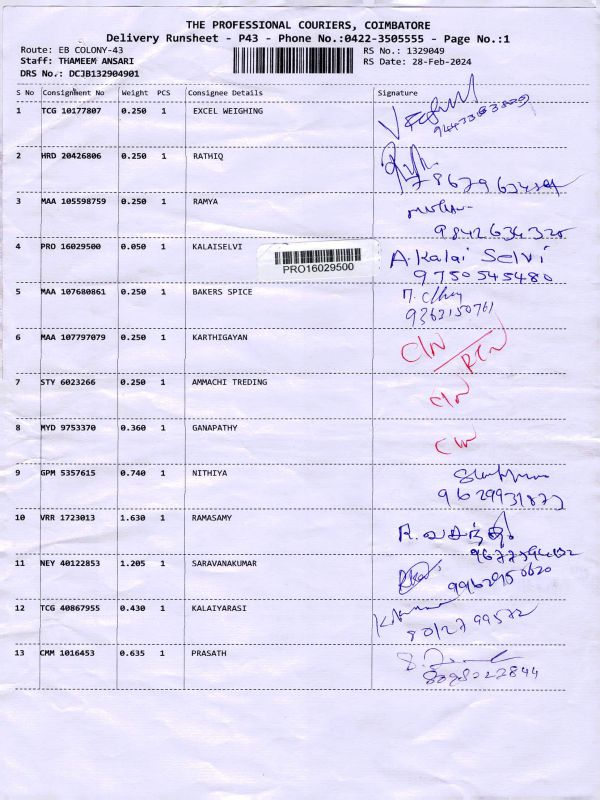 THE PROFESSIONAL COURIERS, COIMBATORE
Delivery Runsheet - P43 - Phone No.:0422-3505555 - Page No.:1
Route: EB COLONY-43 RS No.: 1329049
Staff: THAMEEM ANSARI RS Date: 28-Feb-2024
DRS No.: DCJB132904901
S No Consignment No Weight PCS Consignee Details Signature
1 TCG 10177807 0.250 1 EXCEL WEIGHING
2 HRD 20426806 0.250 1 RATHIQ
3 MAA 105598759 0.250 1 RAMYA
9842634320
4 PRO 16029500 0.050 1 KALAISELVI A. Kalai Selvi
PRO16029500 9750545480
5 MAA 107680861 0.250 1 BAKERS SPICE
9362150761
6 MAA 107797079 0.250 1 KARTHIGAYAN C/N
7 STY 6023266 0.250 1 AMMACHI TREDING C/N
8 MYD 9753370 0.360 1 GANAPATHY C/N
9 GPM 5357615 0.740 1 NITHIYA
9629931872
10 VRR 1723013 1.630 1 RAMASAMY R. வசந்தி
11 NEY 40122853 1.205 1 SARAVANAKUMAR
9962950620
12 TCG 40867955 0.430 1 KALAIYARASI
8012799572
13 CMM 1016453 0.635 1 PRASATH